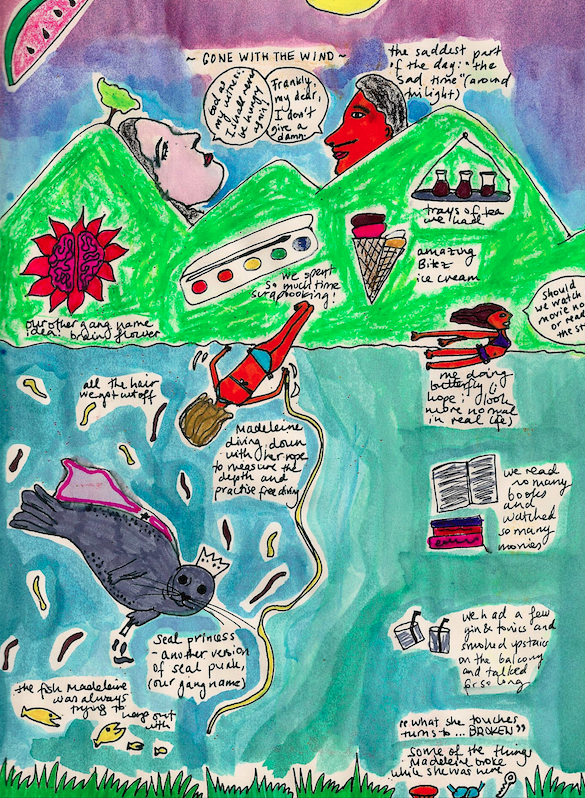 ~ GONE WITH THE WIND ~
the saddest part
of the day: "the
sad time" (around
twilight)
God as
my witness,
I shall never
be hungry
again.
Frankly,
my dear,
I don't
give a
damn.
trays of tea
we had
amazing
Bitez
ice cream
we spent
so much time
scrapbooking!
our other gang name
idea: brain flower
should
we watch
movie no
or read
the s
me doing
butterfly (i
hope i look
more normal
in real life)
all the hair
we got cut off
Madeleine
diving down
with her rope
to measure the
depth and
practise free diving
we read
so many
books
and
watched
so many
movies
seal princess
- another version
of seal punk,
(our gang name)
we had a few
gin & tonics and
smoked upstairs
on the balcony
and talked
for so long
the fish Madeleine
was always
trying to hang out
with
"what she touches
turns to ... BROKEN"
some of the things
Madeleine broke
while she was here